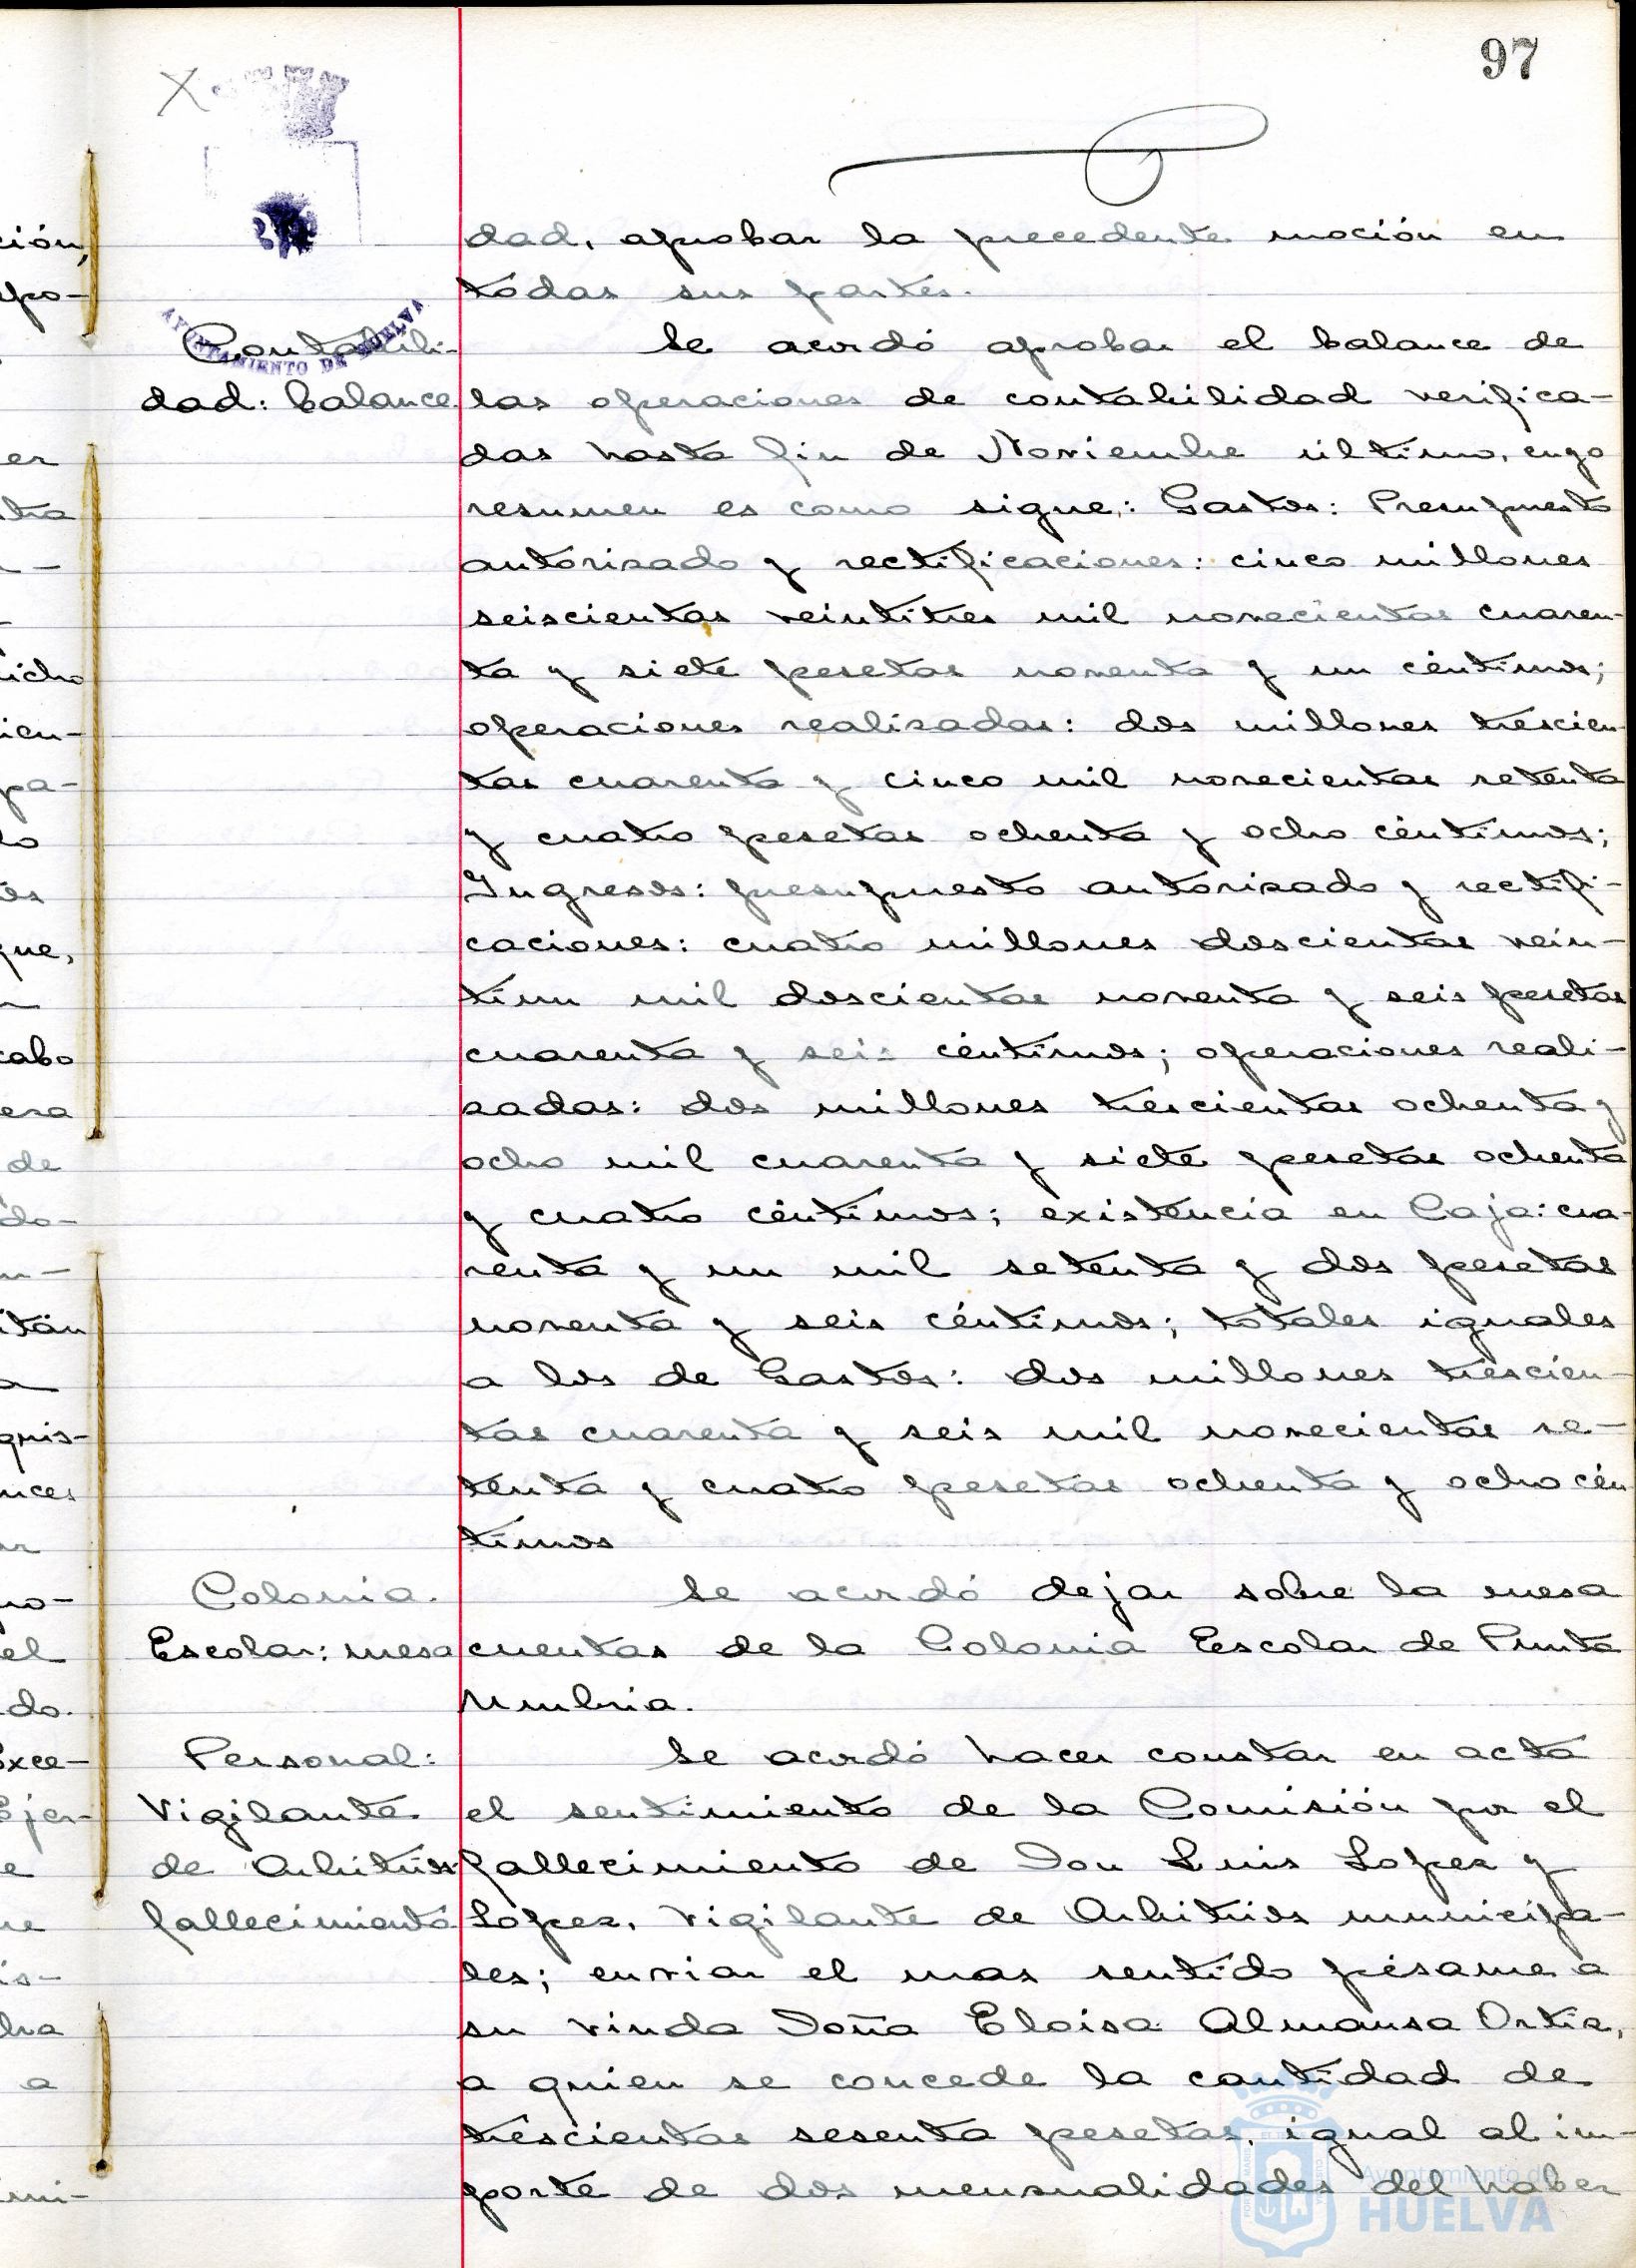 97
dad, aprobar la precedente moción en
todas sus partes.
AYUNTAMIENTO DE HUELVA
Contabili-
dad: balance.
Se acordó aprobar el balance de
las operaciones de contabilidad verifica-
das hasta fin de Noviembre último, cuyo
resumen es como sigue: Gastos: Presupuesto
autorizado y rectificaciones: cinco millones
seiscientas veintitres mil novecientas cuaren-
ta y siete pesetas noventa y un céntimos;
operaciones realizadas: dos millones trescien-
tas cuarenta y cinco mil novecientas setenta
y cuatro pesetas ochenta y ocho céntimos;
Ingresos: presupuesto autorizado y rectifi-
caciones: cuatro millones doscientas vein-
tiun mil doscientas noventa y seis pesetas
cuarenta y seis céntimos; operaciones reali-
zadas: dos millones trescientas ochenta y
ocho mil cuarenta y siete pesetas ochenta
y cuatro céntimos; existencia en Caja: cua-
renta y un mil setenta y dos pesetas
noventa y seis céntimos; totales iguales
a los de Gastos: dos millones trescien-
tas cuarenta y seis mil novecientas se-
tenta y cuatro pesetas ochenta y ocho cén
timos
Colonia.
Escolar: mesa
Se acordó dejar sobre la mesa
cuentas de la Colonia Eescolar de Punta
Umbria.
Personal:
Vigilante.
de Arbitrios
fallecimiento
Se acordó hacer constar en acta
el sentimiento de la Comisión por el
fallecimiento de Don Luis Lopez y
López, Vigilante de Arbitrios municipa-
les; enviar el mas sentido pésame a
su viuda Doña Eloisa Almansa Ortiz,
a quien se concede la cantidad de
trescientas sesenta pesetas, igual al im-
porte de dos mensualidades del haber
Ayuntamiento de
HUELVA
ción,
apo-
er
tra
icho
ien-
pa-
lo
que,
cabo
era
de
do-
itán
quis-
nces
ar
no-
el
do.
Exce-
Ejer-
e
is-
a
mi-